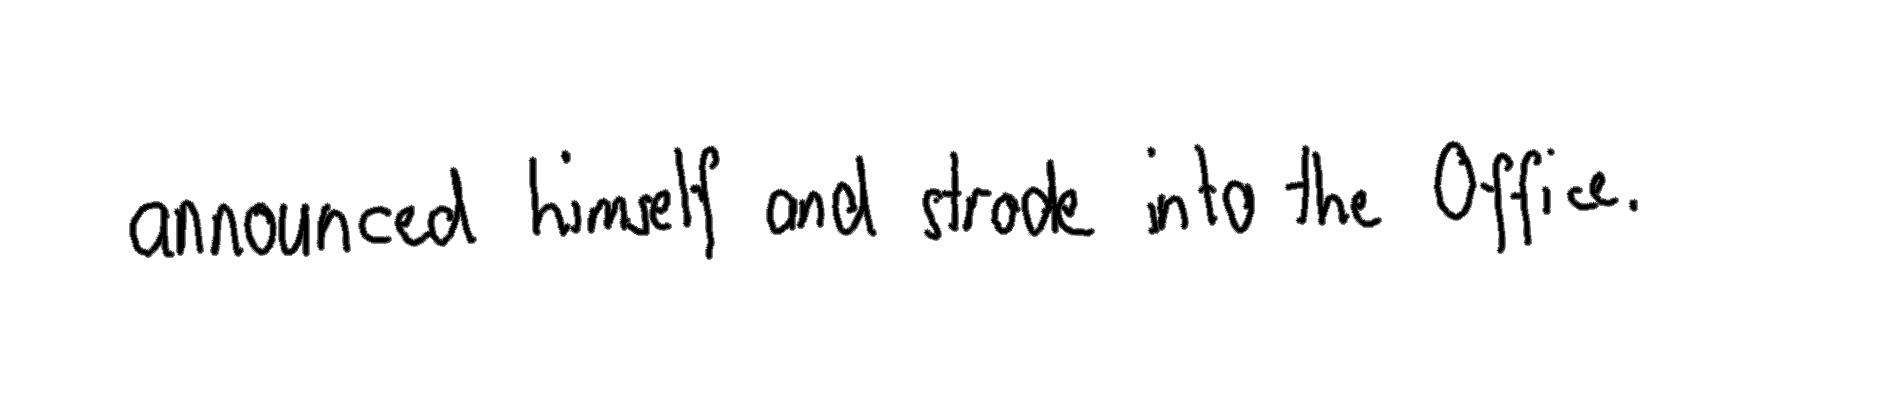 announced himself and strode into the Office.